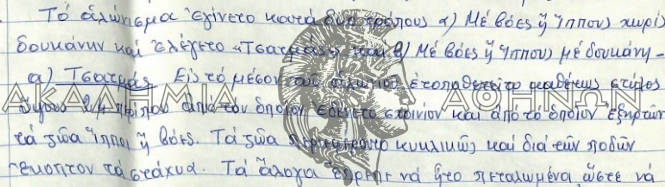 Τό ἁλώνισμα ἐγίνετο κατά δύο τρόπους α) Μέ βόες ἤ ἵππους χωρίς
δουκάνην καί ἐλέγετο «Τσατμάς» καί β) Μέ βόες ἤ ἵππους μέ δουκάνη -
α) Τσατμάς Εἰς τό μέσον τοῦ ἁλωνίου ἐτοποθετεῖτο καθέτως στῦλος
ὕψους ἀπό τόν ὁποῖον ἐδένετο σχοινίον καί ἀπό τό ὁποῖον ἐξηρτῶντο
τά ζῶα ἵπποι ἤ βόες. Τά ζῶα περιεφέροντο κυκλικῶς καί διά τῶν ποδῶν
ἔκοπτον τά στάχυα. Τά ἄλογα ἔπρεπε νά ἦτο πεταλωμένα ὥστε νά
ΑΚΑΔΗΜΙΑ ΑΘΗΝΩΝ